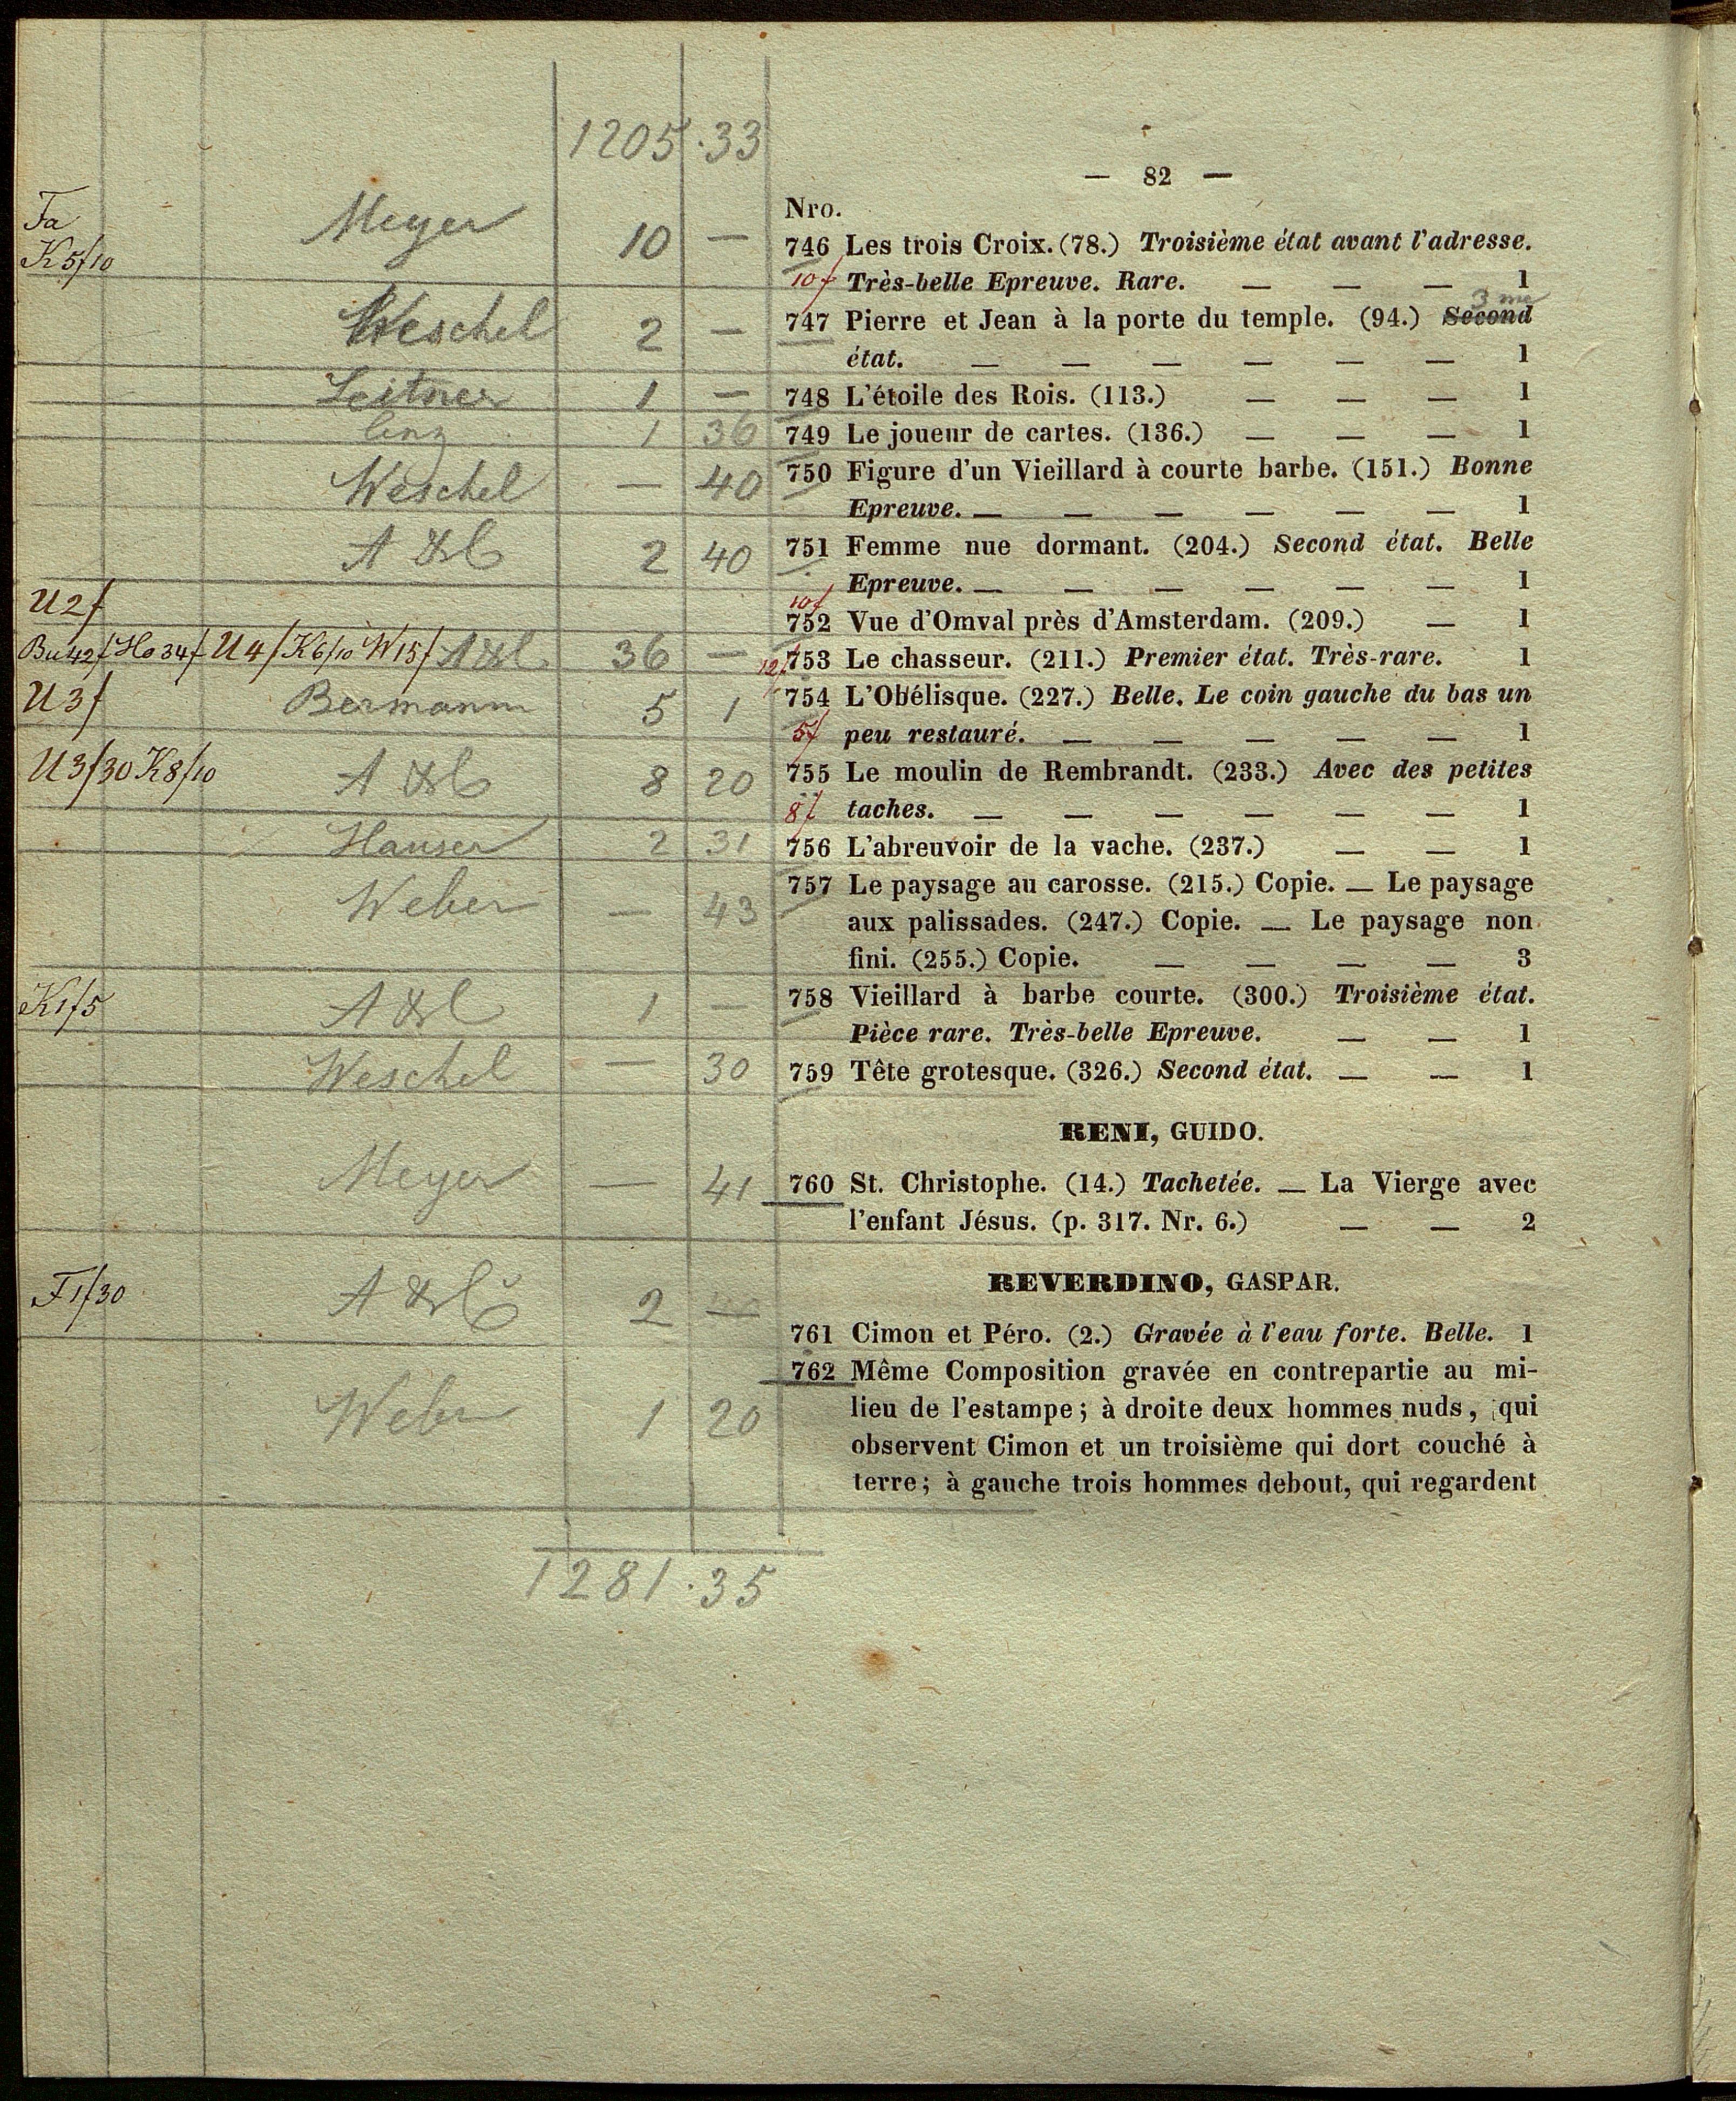 1205.33
— 82 —
Nro.
Fa
K 5f10
Meyer 10 —
746 Les trois Croix. (78.) Troisième état avant l'adresse.
10f Très-belle Epreuve. Rare. — — — 1
3 me
Weschel 2 —
747 Pierre et Jean à la porte du temple. (94.) Second
état. — — — — — — 1
Leitner 1 — 748 L'étoile des Rois. (113.) — — — 1
1 36 749 Le joueur de cartes. (136.) — — — 1
Weschel — 40 750 Figure d'un Vieillard à courte barbe. (151.) Bonne
Epreuve. — — — — — — 1
A & C 2 40 751 Femme nue dormant. (204.) Second état. Belle
Epreuve. — — — — — — 1
U2f 10f
752 Vue d'Omval près d'Amsterdam. (209.) — 1
Bu42f Ho34f U4f K6f10 W15f A & C 36 — 12f 753 Le chasseur. (211.) Premier état. Très-rare. 1
U3f Bermann 5 1 754 L'Obélisque. (227.) Belle. Le coin gauche du bas un
5f peu restauré. — — — — — 1
U3f30 K8f10 A & C 8 20 755 Le moulin de Rembrandt. (233.) Avec des petites
8f taches. — — — — — — 1
Hauser 2 31 756 L'abreuvoir de la vache. (237.) — — 1
Weber — 43 757 Le paysage au carosse. (215.) Copie. — Le paysage
aux palissades. (247.) Copie. — Le paysage non
fini. (255.) Copie. — — — — 3
K1f5 A & C 1 — 758 Vieillard à barbe courte. (300.) Troisième état.
Pièce rare. Très-belle Epreuve. — — 1
Weschel — 30 759 Tête grotesque. (326.) Second état. — — 1
RENI, GUIDO.
Meyer — 41 760 St. Christophe. (14.) Tachetée. — La Vierge avec
l'enfant Jésus. (p. 317. Nr. 6.) — — 2
REVERDINO, GASPAR.
F1f30 A & C 2 —
761 Cimon et Péro. (2.) Gravée à l'eau forte. Belle. 1
762 Même Composition gravée en contrepartie au mi-
Weber 1 20 lieu de l'estampe; à droite deux hommes nuds, qui
observent Cimon et un troisième qui dort couché à
terre; à gauche trois hommes debout, qui regardent
1281.35